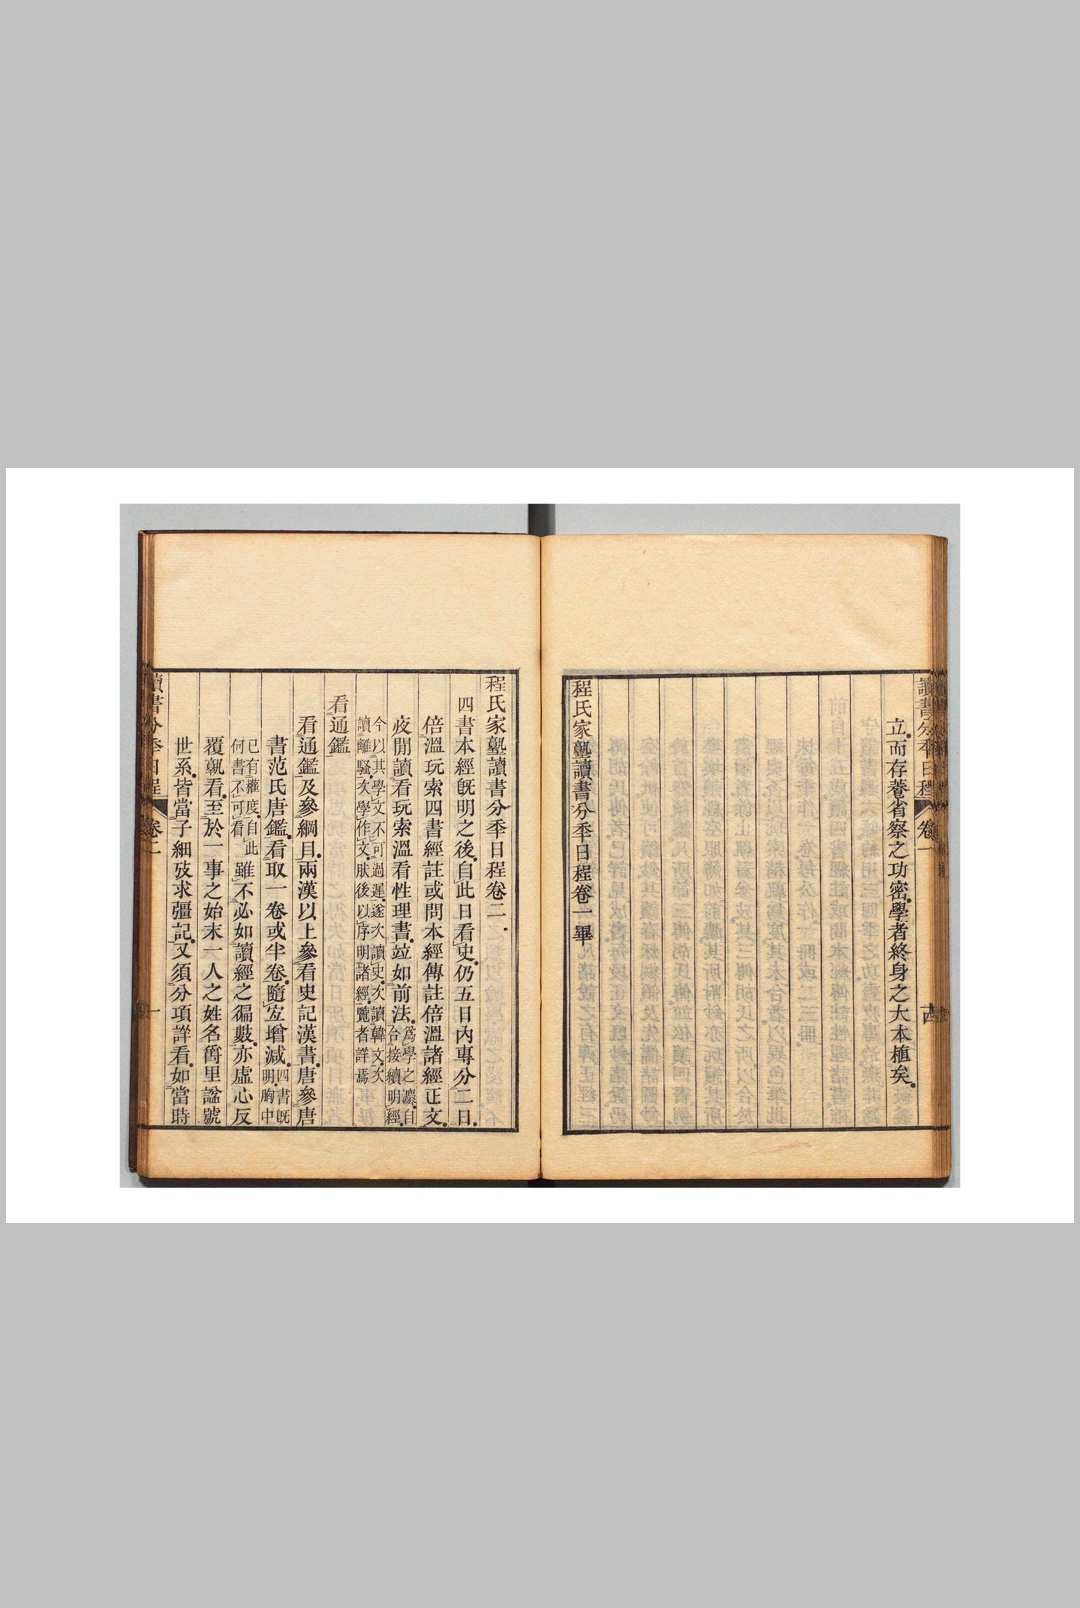 讀書分秊日程
卷一
立而存養省察之功密學者終身之大本植矣
程氏家塾讀書分秊日程卷一畢
程氏家塾讀書分秊日程卷二
四書本經旣明之後自此日看史仍五日內專分二日
倍溫玩索四書經註或問本經傳註倍溫諸經正文
夜閒讀看玩索溫看性理書竝如前法爲學之灋自合接續明經
今以其學文不可過遲遂次讀史次讀韓文次讀離騷次學作文肰後以序明諸經覽者詳焉
看通鑑
看通鑑及參綱目兩漢以上參看史記漢書唐參唐
書范氏唐鑑看取一卷或半卷隨宜增減四書旣明胸中
已有權度自此何書不可看雖不必如讀經之徧數亦虛心反
覆孰看至於一事之始末一人之姓名爵里諡號
世系皆當子細攷求彊記又須分項詳看如當時
讀書分秊日程
卷二
一